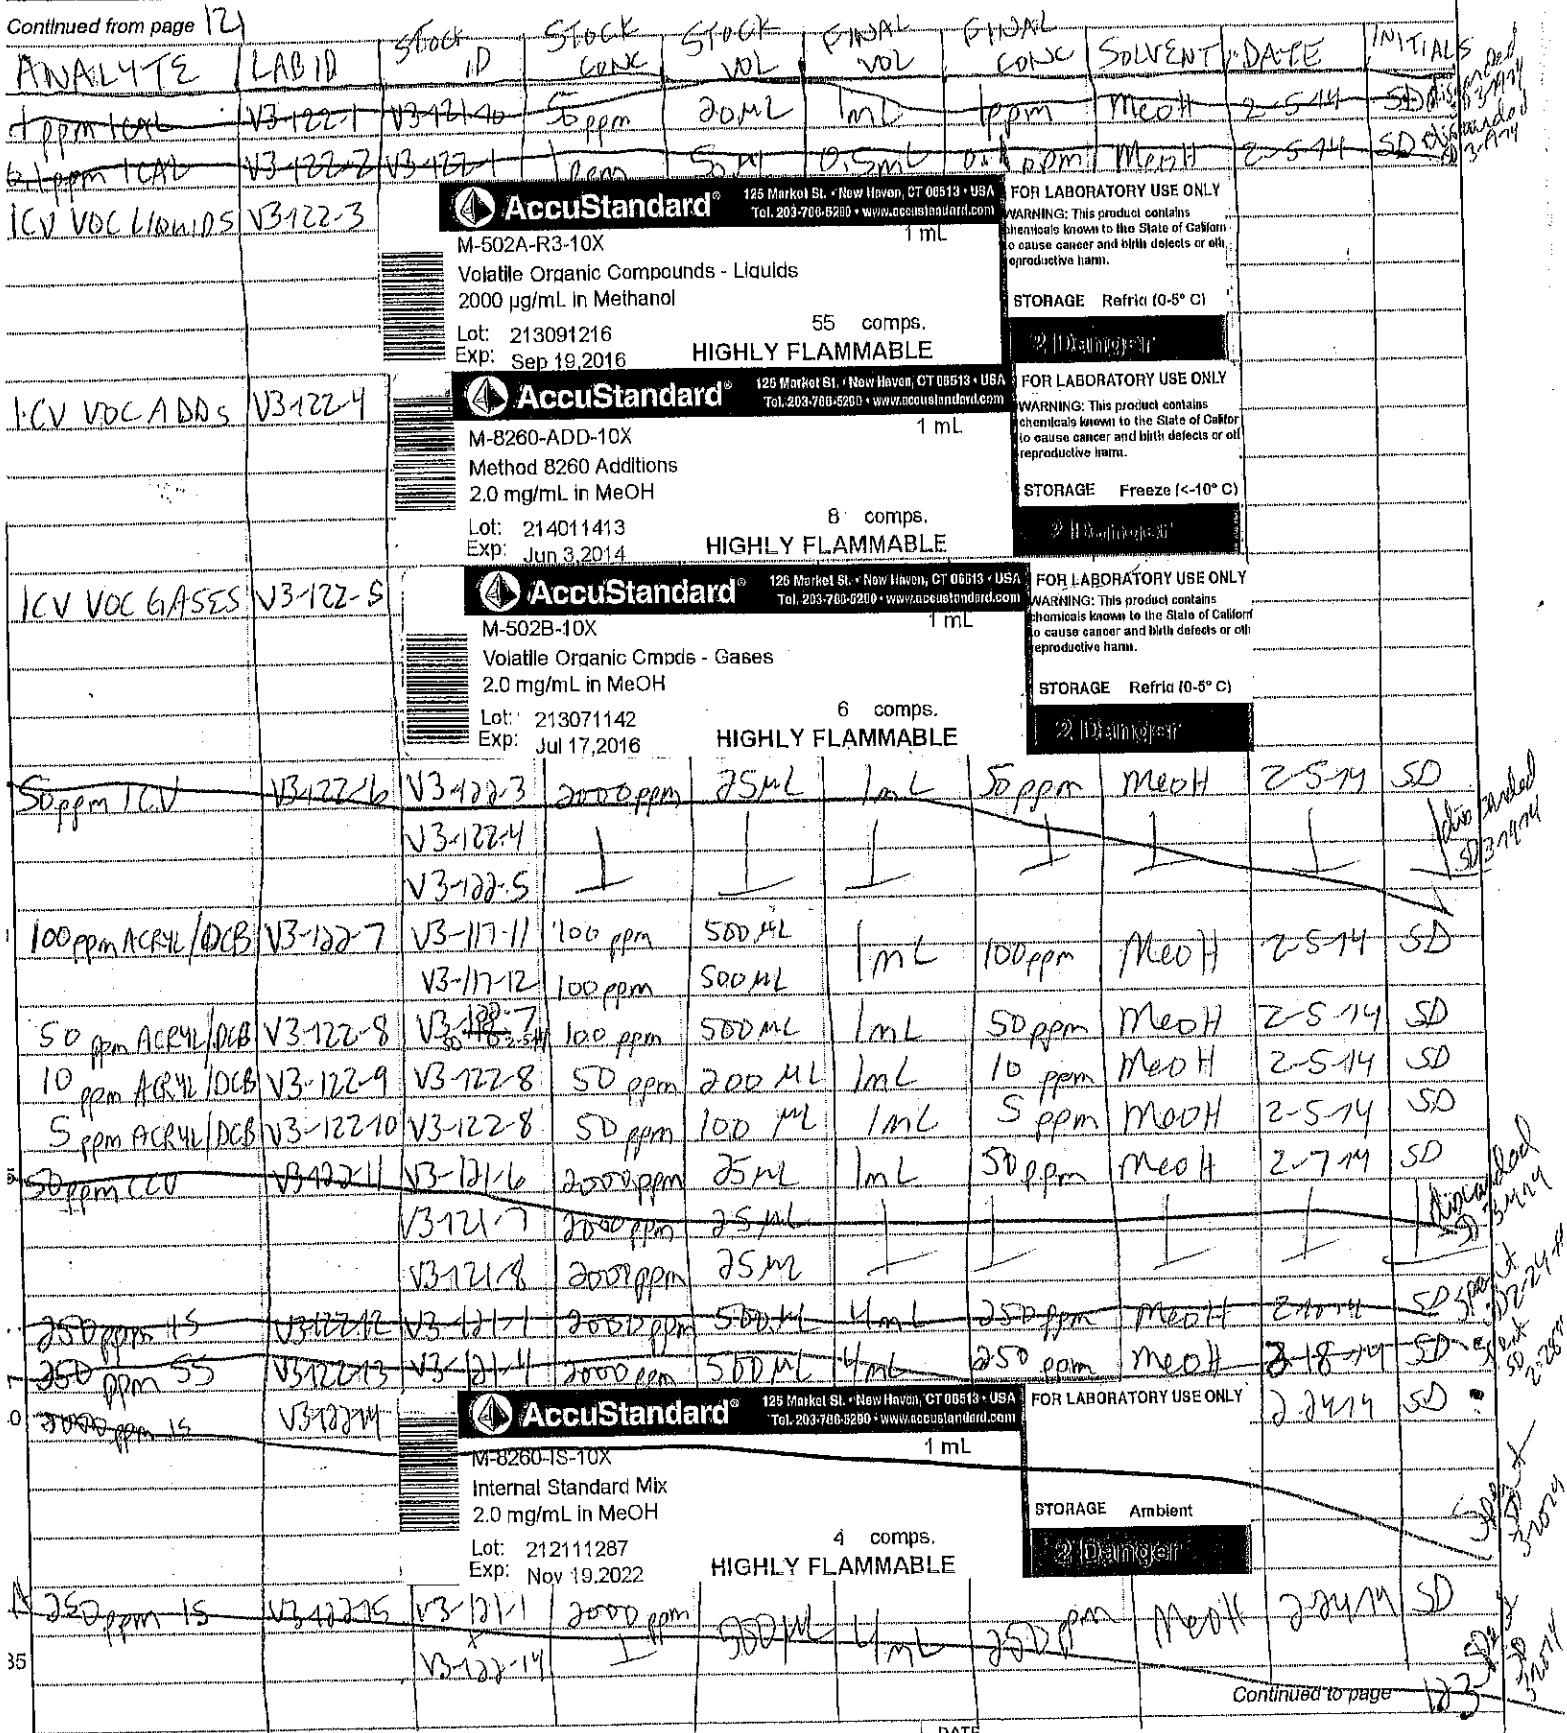 Continued from page 121
ANALYTE LAB ID STOCK ID STOCK CONC STOCK VOL FINAL VOL FINAL CONC SOLVENT DATE INITIALS
1 ppm ICAL V3-122-1 V3-121-10 50 ppm 20 µL 1mL 1ppm MeOH 2-5-14 SD discarded SD 3-14-14
0.1ppm ICAL V3-122-2 V3-122-1 1ppm 50 µL 0.5mL 0.1ppm MeOH 2-5-14 SD discarded
ICV VOC LIQUIDS V3-122-3
AccuStandard® 125 Market St. • New Haven, CT 06513 • USA
Tel. 203-786-5290 • www.accustandard.com
M-502A-R3-10X 1 mL
Volatile Organic Compounds - Liquids
2000 µg/mL in Methanol
Lot: 213091216 55 comps.
Exp: Sep 19,2016 HIGHLY FLAMMABLE
FOR LABORATORY USE ONLY
WARNING: This product contains
chemicals known to the State of Californ
o cause cancer and birth defects or oth
eproductive harm.
STORAGE Refrig (0-5° C)
2 Danger
ICV VOC ADDs V3-122-4
AccuStandard® 125 Market St. • New Haven, CT 06513 • USA
Tel. 203-786-5290 • www.accustandard.com
M-8260-ADD-10X 1 mL
Method 8260 Additions
2.0 mg/mL in MeOH
Lot: 214011413 8 comps.
Exp: Jun 3,2014 HIGHLY FLAMMABLE
FOR LABORATORY USE ONLY
WARNING: This product contains
chemicals known to the State of Califor
to cause cancer and birth defects or otl
reproductive harm.
STORAGE Freeze (<-10° C)
2 Danger
ICV VOC GASES V3-122-5
AccuStandard® 125 Market St. • New Haven, CT 06513 • USA
Tel. 203-786-5290 • www.accustandard.com
M-502B-10X 1 mL
Volatile Organic Cmpds - Gases
2.0 mg/mL in MeOH
Lot: 213071142 6 comps.
Exp: Jul 17,2016 HIGHLY FLAMMABLE
FOR LABORATORY USE ONLY
WARNING: This product contains
chemicals known to the State of Californ
o cause cancer and birth defects or oth
eproductive harm.
STORAGE Refrig (0-5° C)
2 Danger
50ppm ICV V3-122-6 V3-122-3 2000ppm 25µL 1mL 50ppm MeOH 2-5-14 SD
V3-122-4 discarded
V3-122-5 SD
100ppm ACRYL/DCB V3-122-7 V3-117-11 100 ppm 500 µL 1mL 100ppm MeOH 2-5-14 SD
V3-117-12 100 ppm 500 µL
50 ppm ACRYL/DCB V3-122-8 100 ppm 500 µL 1mL 50 ppm MeOH 2-5-14 SD
10 ppm ACRYL/DCB V3-122-9 V3-122-8 50 ppm 200 µL 1mL 10 ppm MeOH 2-5-14 SD
5 ppm ACRYL/DCB V3-122-10 V3-122-8 50 ppm 100 µL 1mL 5 ppm MeOH 2-5-14 SD
50ppm CCV V3-122-11 V3-121-6 2000ppm 25µL 1mL 50ppm MeOH 2-7-14 SD
V3-121-7 2000ppm 25µL discarded
V3-121-8 2000ppm 25µL
250ppm IS V3-122-12 V3-121-1 2000ppm 500µL 4mL 250ppm MeOH 2-10-14 SD spent
250 ppm SS V3-122-13 V3-121-4 2000ppm 500µL 4mL 250 ppm MeOH 2-18-14 SD spent
2000 ppm IS V3-122-14 2-24-14 SD
AccuStandard® 125 Market St. • New Haven, CT 06513 • USA
Tel. 203-786-5290 • www.accustandard.com
M-8260-IS-10X 1 mL
Internal Standard Mix
2.0 mg/mL in MeOH
Lot: 212111287 4 comps.
Exp: Nov 19,2022 HIGHLY FLAMMABLE
FOR LABORATORY USE ONLY
STORAGE Ambient
2 Danger
spent SD
250ppm IS V3-122-15 V3-121-1 2000 ppm 500µL 4mL 250 ppm MeOH 2-24-14 SD
35 V3-122-14
Continued to page 123
DATE